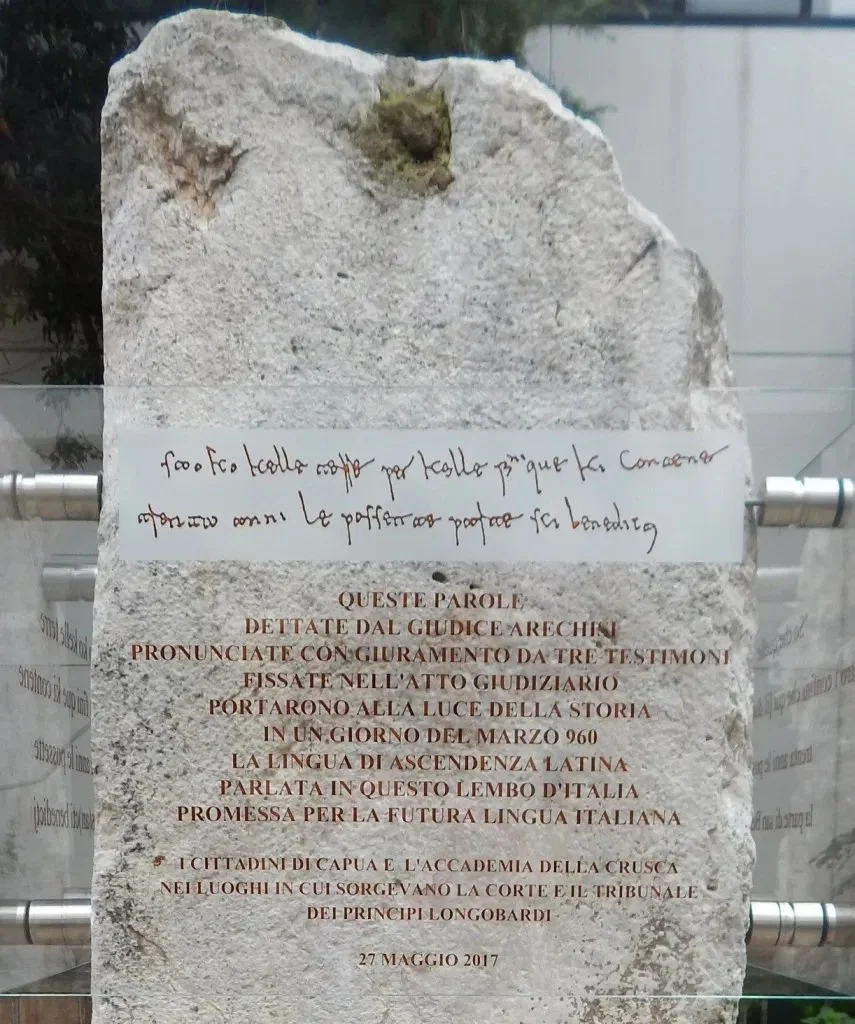 sao ko kelle terre per kelle fini que ki contene
trenta anni le possette parte sci benedicti
QUESTE PAROLE
DETTATE DAL GIUDICE ARECHISI
PRONUNCIATE CON GIURAMENTO DA TRE TESTIMONI
FISSATE NELL'ATTO GIUDIZIARIO
PORTARONO ALLA LUCE DELLA STORIA
IN UN GIORNO DEL MARZO 960
LA LINGUA DI ASCENDENZA LATINA
PARLATA IN QUESTO LEMBO D'ITALIA
PROMESSA PER LA FUTURA LINGUA ITALIANA
I CITTADINI DI CAPUA E L'ACCADEMIA DELLA CRUSCA
NEI LUOGHI IN CUI SORGEVANO LA CORTE E IL TRIBUNALE
DEI PRINCIPI LONGOBARDI
27 MAGGIO 2017
ko kelle terre
fini que ki contene
anni le possette
trenta anni le
la parte di san